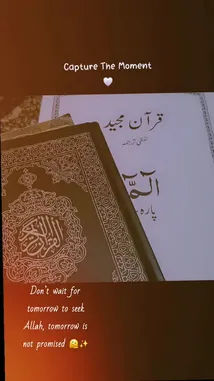 Capture The Moment
🤍
قرآن مجید
الٓمّٓ
پارہ
القرآن الكريم
Don't wait for
tomorrow to seek
Allah, tomorrow is
not promised 🤗✨